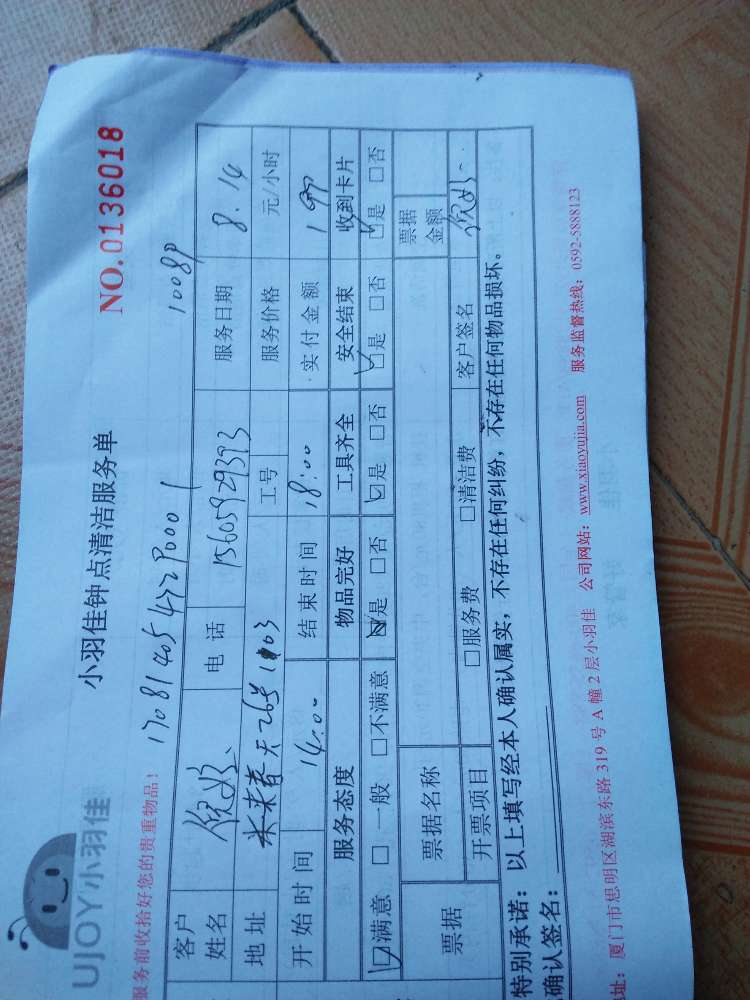 UJOY小羽佳
小羽佳钟点清洁服务单
NO.0136018
服务前收拾好您的贵重物品！
1708140547290001
1008P
客户姓名 倪好 电话 15605929393 服务日期 8.14
地址 未来春天26号1003 工号 服务价格 元/小时
开始时间 14:00 结束时间 18:00 实付金额
服务态度 物品完好 工具齐全 安全结束 收到卡片
☑满意 □一般 □不满意 ☑是 □否 ☑是 □否 ☑是 □否 ☑是 □否
票据 票据名称 票据金额
开票项目 □服务费 □清洁费 客户签名
特别承诺：以上填写经本人确认属实，不存在任何纠纷，不存在任何物品损坏。
确认签名：
址：厦门市思明区湖滨东路 319 号 A 幢 2 层小羽佳 公司网站：www.xiaoyujia.com 服务监督热线：0592-5888123